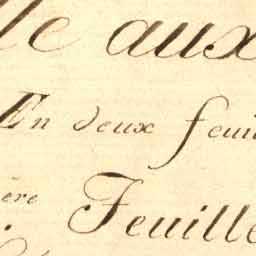 lle aux
En deux feui
ère Feuille